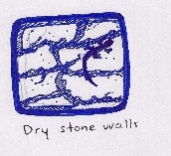 Dry stone walls